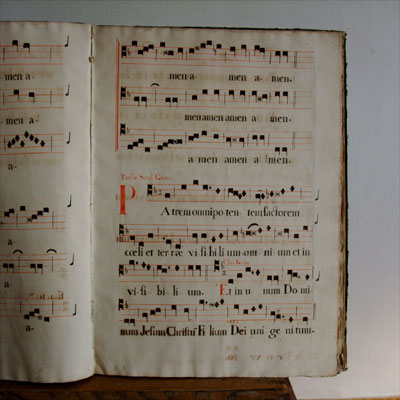 men a
men a-
a-
a-
a-
a-
men a men a- men-
men amen amen a- men-
a men amen a- men-
P
A trem omnipo ten- tem factorem
cœli et ter ræ vi si bi li um om ni um et in
vi si- bi- li um. Et in u num Do mi
num Jesum Christū Fi lium Dei uni ge ni tum-